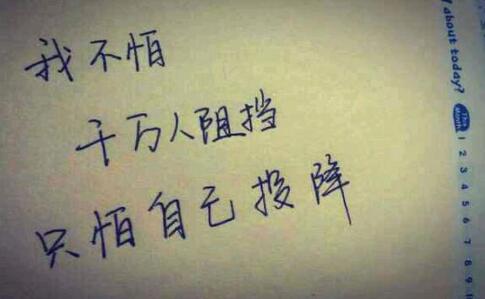 我不怕
千万人阻挡
只怕自己投降
about today?
This Month
1 2 3 4 5 6 7 8 9